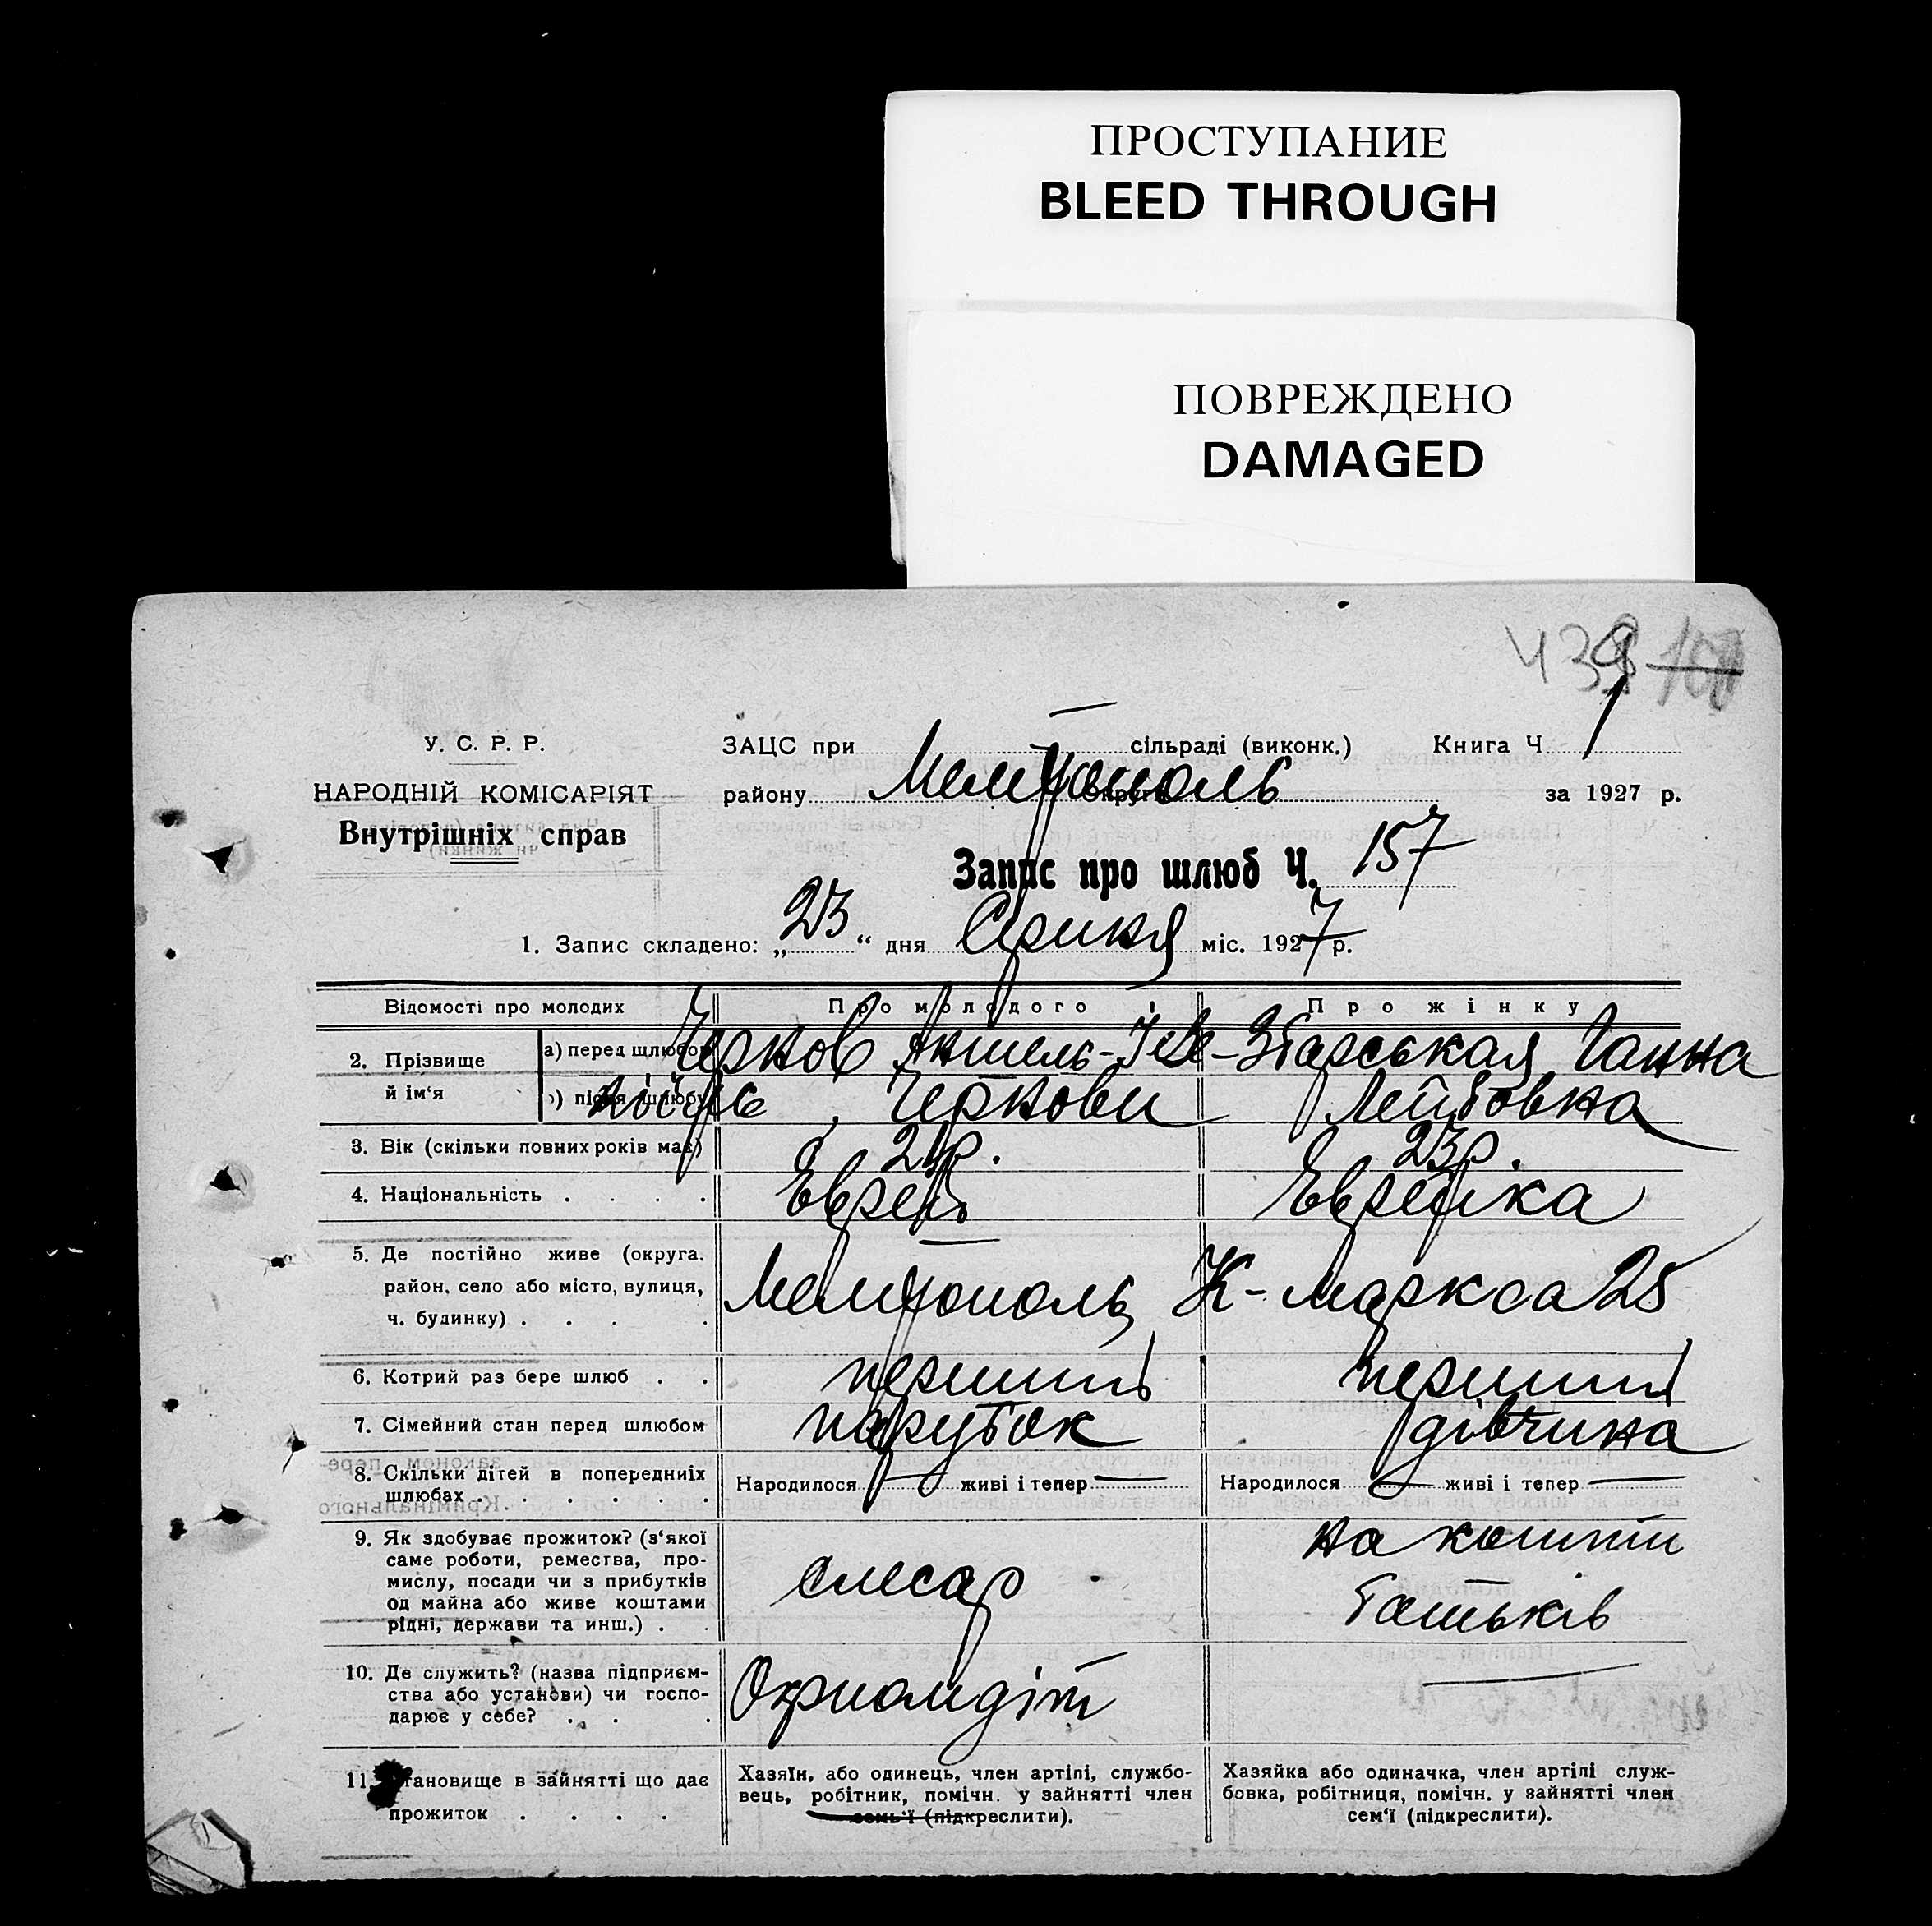 ПРОСТУПАНИЕ
BLEED THROUGH
ПОВРЕЖДЕНО
DAMAGED
У. С. Р. Р.
НАРОДНІЙ КОМІСАРІЯТ
Внутрішніх справ
ЗАЦС при сільраді (виконк.) Книга Ч. 1
району Мелітополь округи за 1927 р.
Запис про шлюб Ч. 157
1. Запис складено: „23“ дня Серпня міс. 1927 р.
Відомості про молодих Про молодого Про жінку
2. Прізвище й ім'я
а) перед шлюбом Черков Аншель- Збарськая Ганна
б) після шлюбу Черкови Лейбовна
3. Вік (скільки повних років має) 23р.
4. Національність . . . . Еврей Еврейка
5. Де постійно живе (округа,
район, село або місто, вулиця,
ч. будинку) . . . . Мелітополь К-Маркса 25
6. Котрий раз бере шлюб . . перший перший
7. Сімейний стан перед шлюбом парубок дівчина
8. Скільки дітей в попередниіх
шлюбах . . . . . . Народилося — живі і тепер — Народилося — живі і тепер —
9. Як здобуває прожиток? (з'якої
саме роботи, ремества, про-
мислу, посади чи з прибутків
од майна або живе коштами
рідні, держави та инш.) . .
слесар
на кошти
батьків
10. Де служить? (назва підприєм-
ства або установи) чи госпо-
дарює у себе? . . . —
11. Становище в зайнятті що дає
прожиток . . . .
Хазяїн, або одинець, член артілі, службо-
вець, робітник, помічн. у зайнятті член
семь'ї (підкреслити).
Хазяйка або одиначка, член артілі служ-
бовка, робітниця, помічн. у зайнятті член
сем'ї (підкреслити).